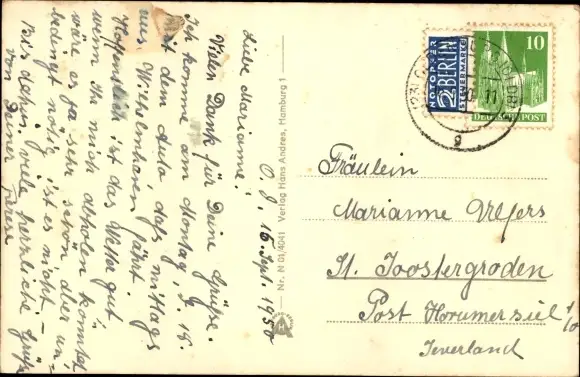 O. J., 15. Sept. 1950
Liebe Marianne!
Vielen Dank für Deine Grüße.
Ich komme am Montag, d. 18.
mit dem Auto, das mittags
aus Wilhelmshaven fährt.
Hoffentlich ist das Wetter gut
wenn Ihr mich abholen könntet
wäre es ja sehr schön aber un-
bedingt nötig ist es nicht. –
Bis dahin viele herzliche Grüße
von Deiner
Verlag Hans Andres, Hamburg 1
Nr. N 01/4041
NOTOPFER
2 BERLIN
STEUERMARKE
10
DEUTSCHE POST
(23)
g
Fräulein
Marianne
St. Joostergroden
Post Horumersiel
i/O
Jeverland